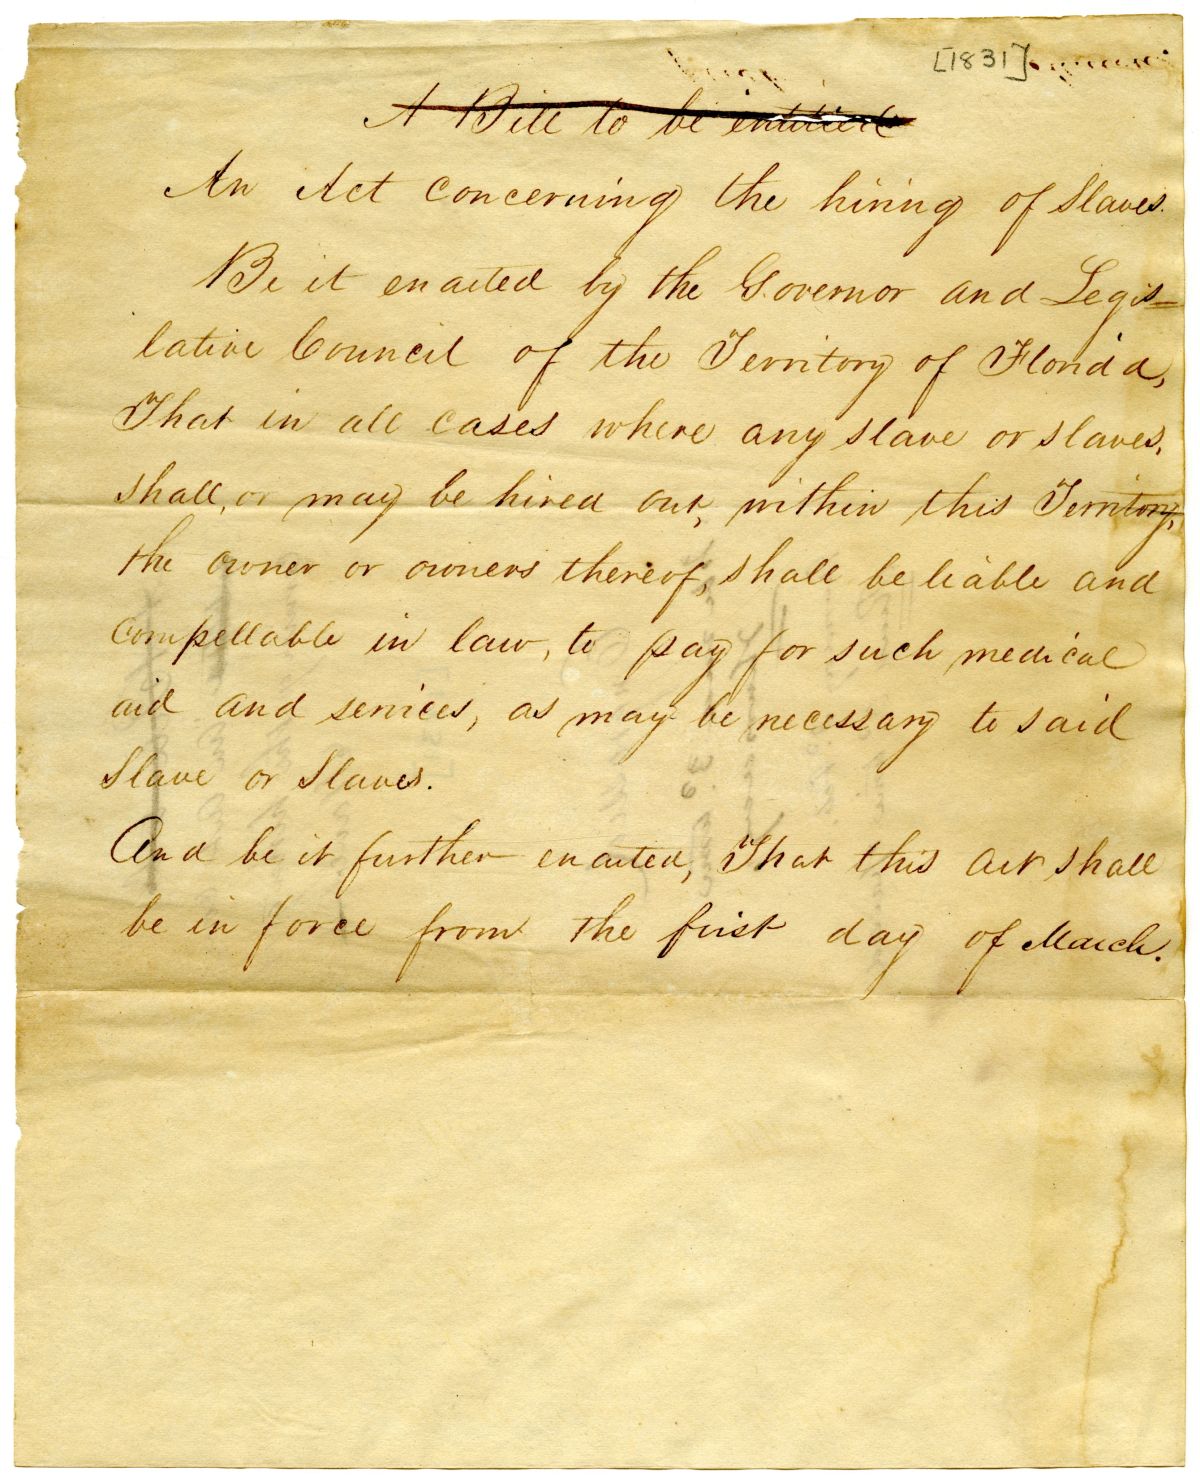 [1831]
A Bill to be entitled
An Act concerning the hiring of Slaves.
Be it enacted by the Governor and Legis=
lative Council of the Territory of Florida,
That in all cases where any slave or slaves,
shall, or may be hired out, within this Territory,
the owner or owners thereof, shall be liable and
compellable in law, to pay for such medical
aid and services, as may be necessary to said
Slave or Slaves.
And be it further enacted, That this act shall
be in force from the first day of March.